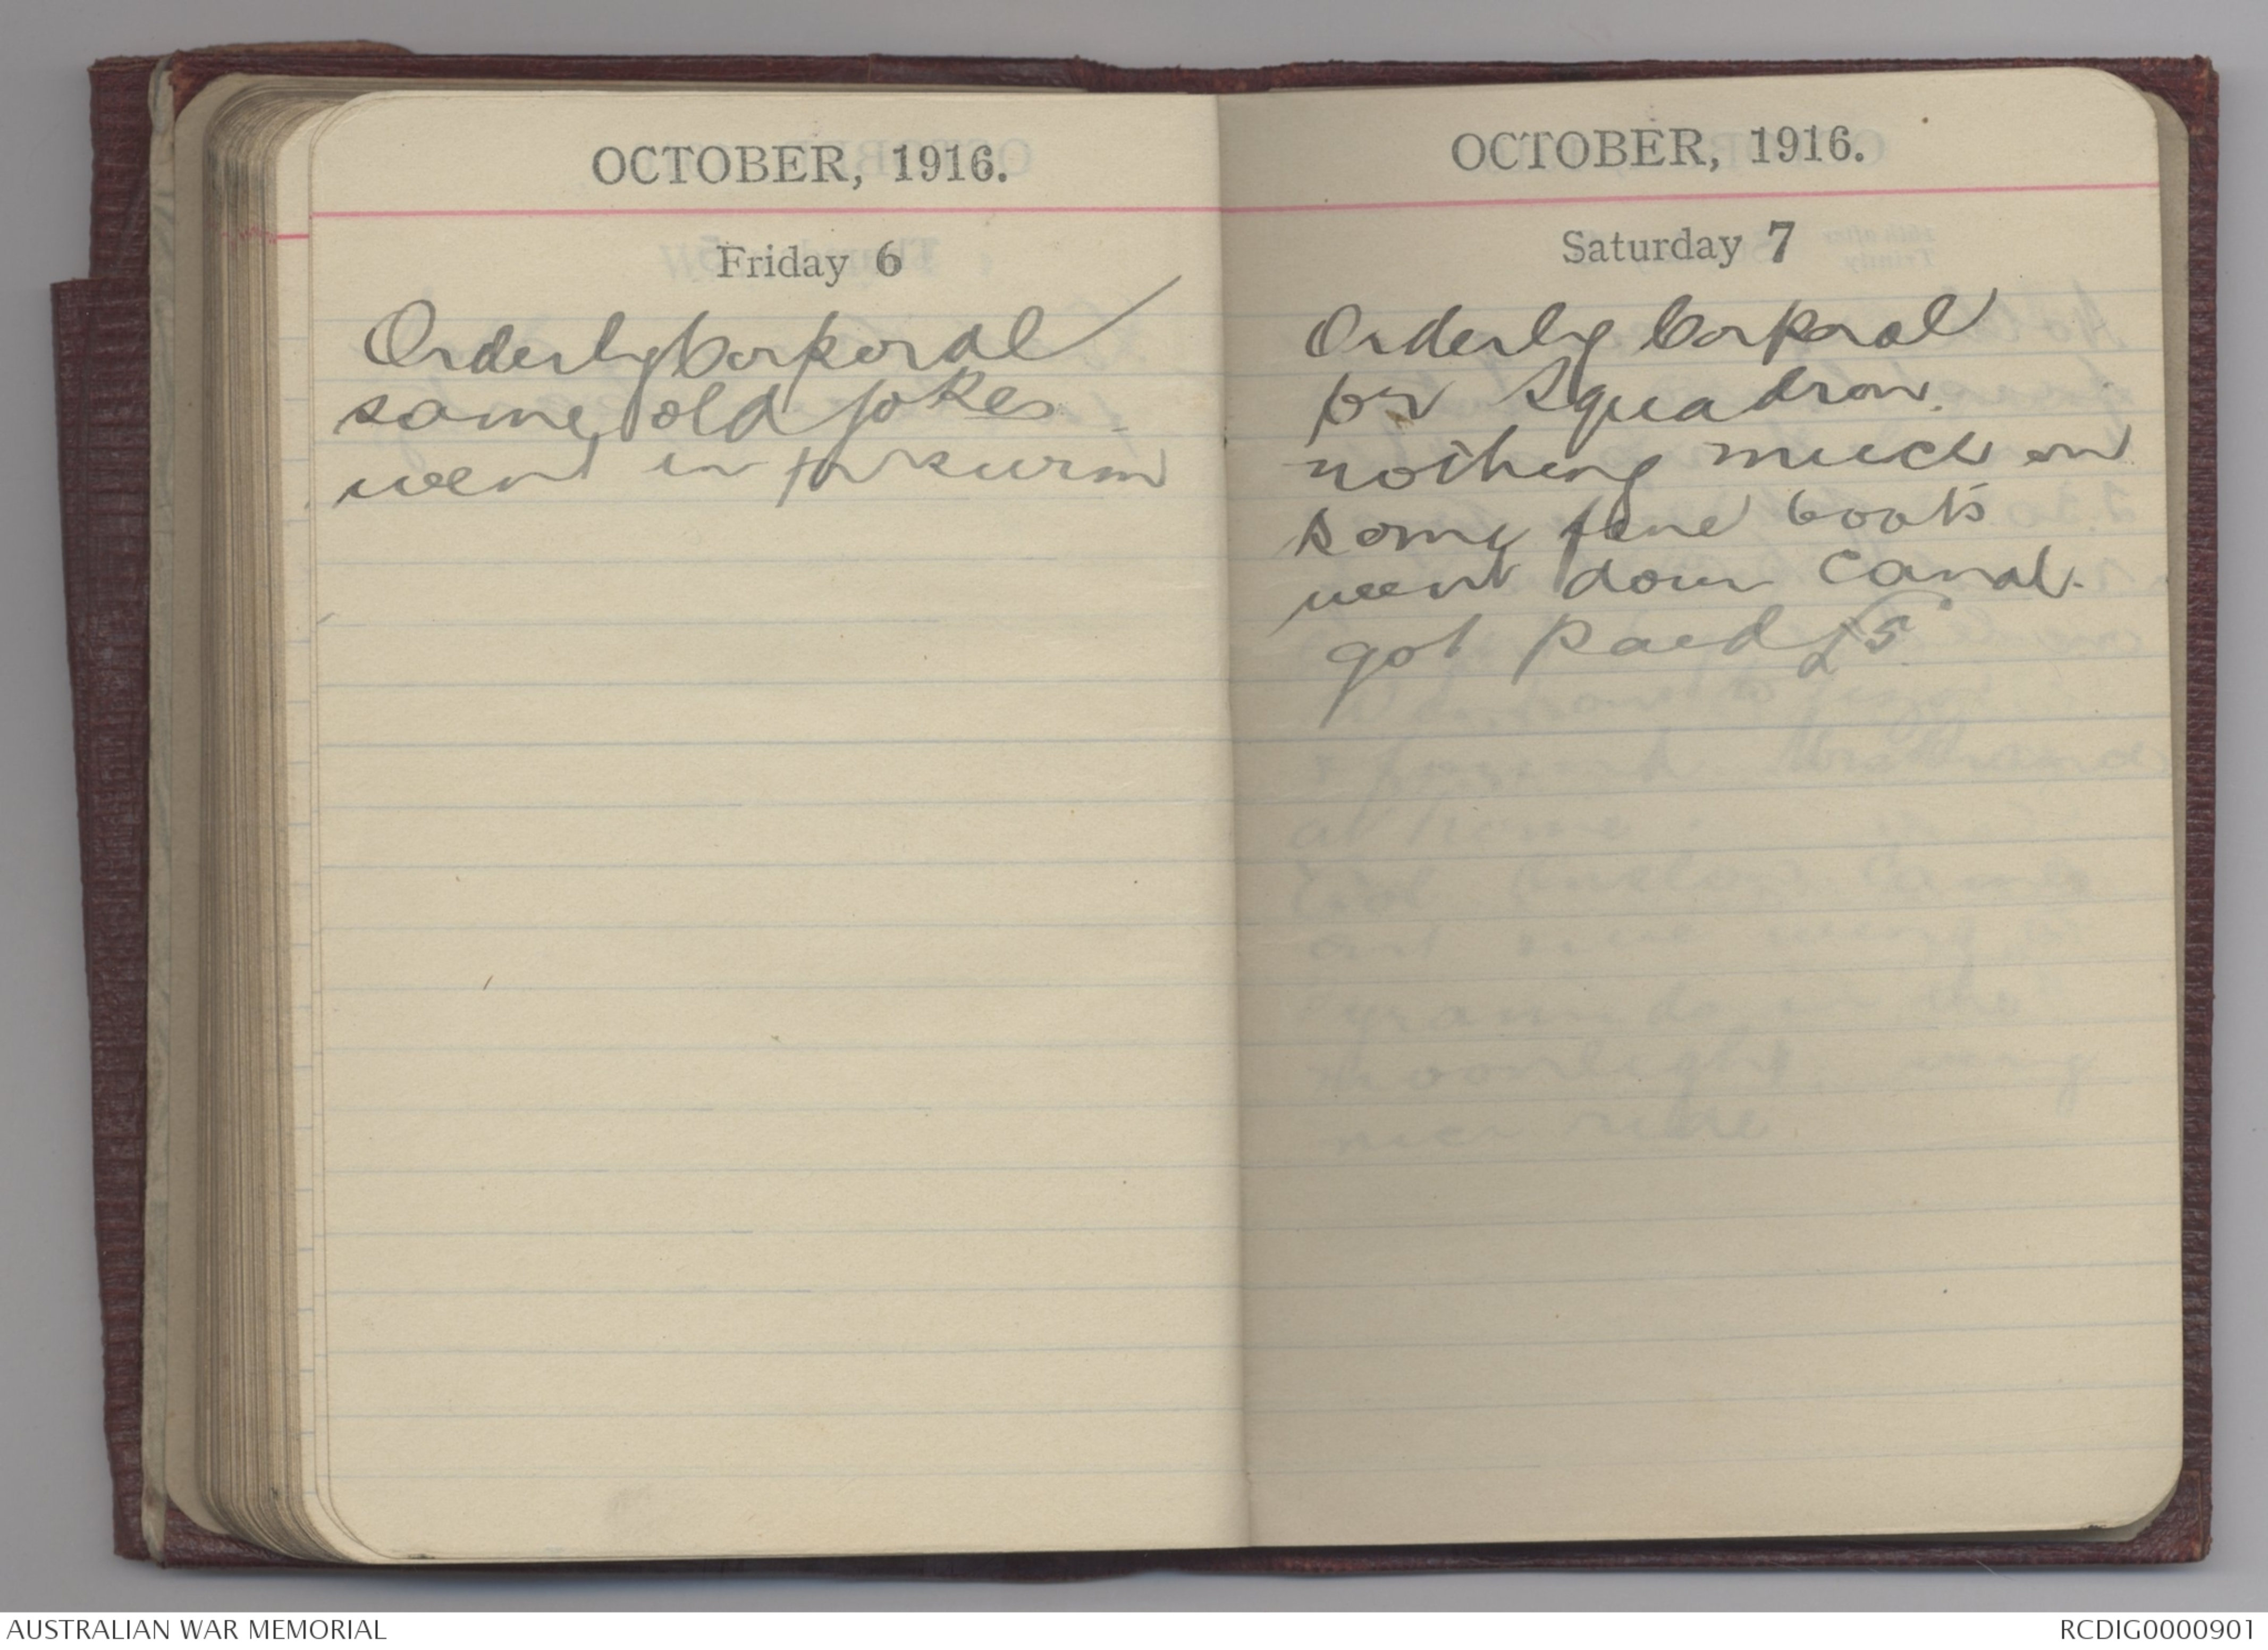 OCTOBER, 1916.
Friday 6
Orderly Corporal
same old jokes
went in for swim
OCTOBER, 1916.
Saturday 7
Orderly Corporal
for Squadron.
nothing much on
some fine boats
went down canal.
got paid £5
AUSTRALIAN WAR MEMORIAL
RCDIG0000901